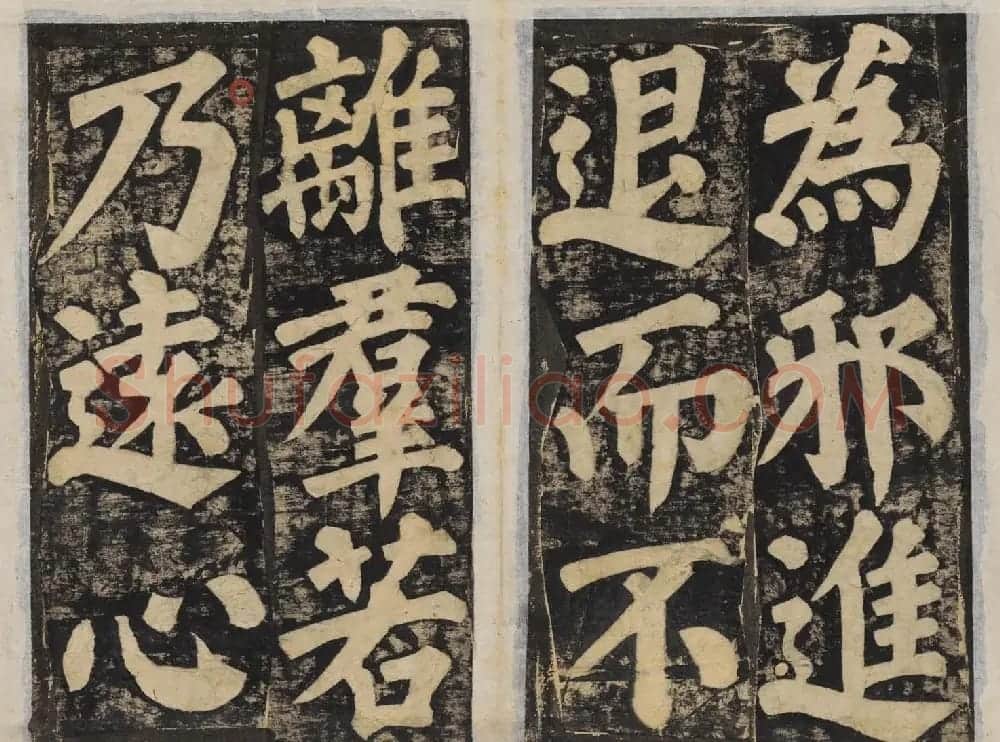 為邪進
退而不
離羣若
乃遠心
Shufaziliao.COM